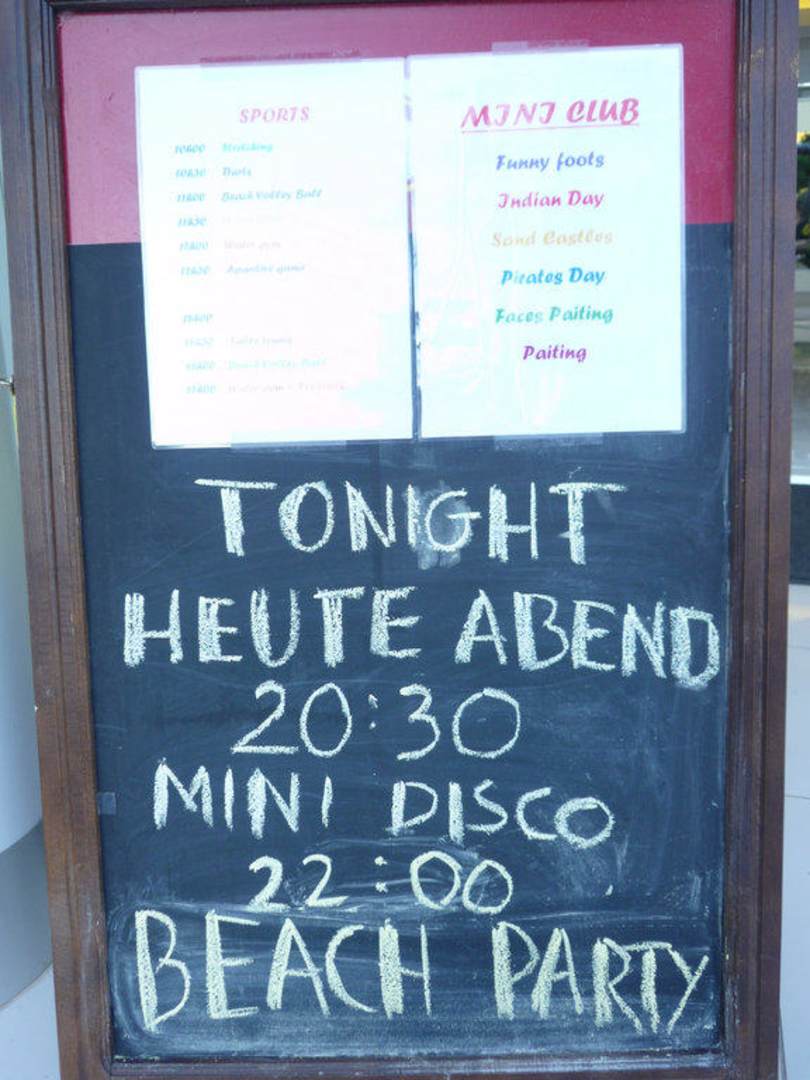 SPORTS
10h00 Stretching
10h30 Darts
11h00 Beach Volley Ball
11h30
12h00 Water gym
Aperitif game
15h00
Beach Volley Ball
MINI CLUB
Funny foots
Indian Day
Sand Castles
Pirates Day
Faces Paiting
Paiting
TONIGHT
HEUTE ABEND
20:30
MINI DISCO
22:00
BEACH PARTY